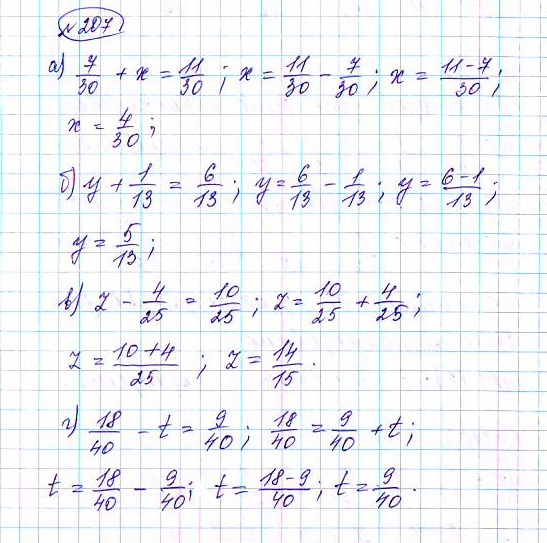 № 207
а) 7/30 + x = 11/30; x = 11/30 - 7/30; x = (11-7)/30;
x = 4/30;
б) y + 1/13 = 6/13; y = 6/13 - 1/13; y = (6-1)/13;
y = 5/13;
в) z - 4/25 = 10/25; z = 10/25 + 4/25;
z = (10+4)/25; z = 14/15.
г) 18/40 - t = 9/40; 18/40 = 9/40 + t;
t = 18/40 - 9/40; t = (18-9)/40; t = 9/40.